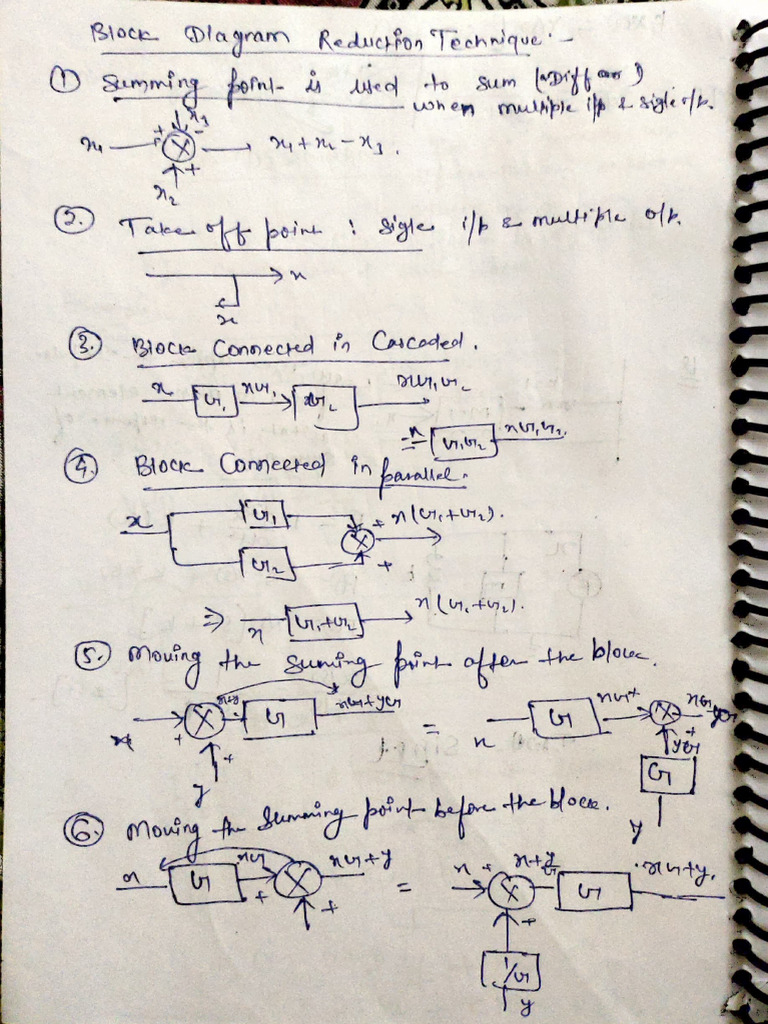 Block Diagram Reduction Technique :-
① Summing point is used to sum (or Differ)
when multiple i/p & sigle o/p.
x₃
+ -
x₁ x₁+x₂-x₃.
+
x₂
② Take off point : sigle i/p & multiple o/p.
x
x
③ Block Connected in Cascaded.
x G₁ xG₁ G₂ xG₁G₂
= x G₁G₂ xG₁G₂
④ Block Connected in parallel.
x G₁ + x(G₁+G₂).
G₂ +
⇒ x G₁+G₂ x(G₁+G₂).
⑤ Moving the suming point after the block.
x+y G xG+yG = x G xG + xG+yG
x + + + yG
y G
y
⑥ Moving the Summing point before the block.
x G xG + xG+y = x + x+y/G G xG+y.
+ +
1/G
y